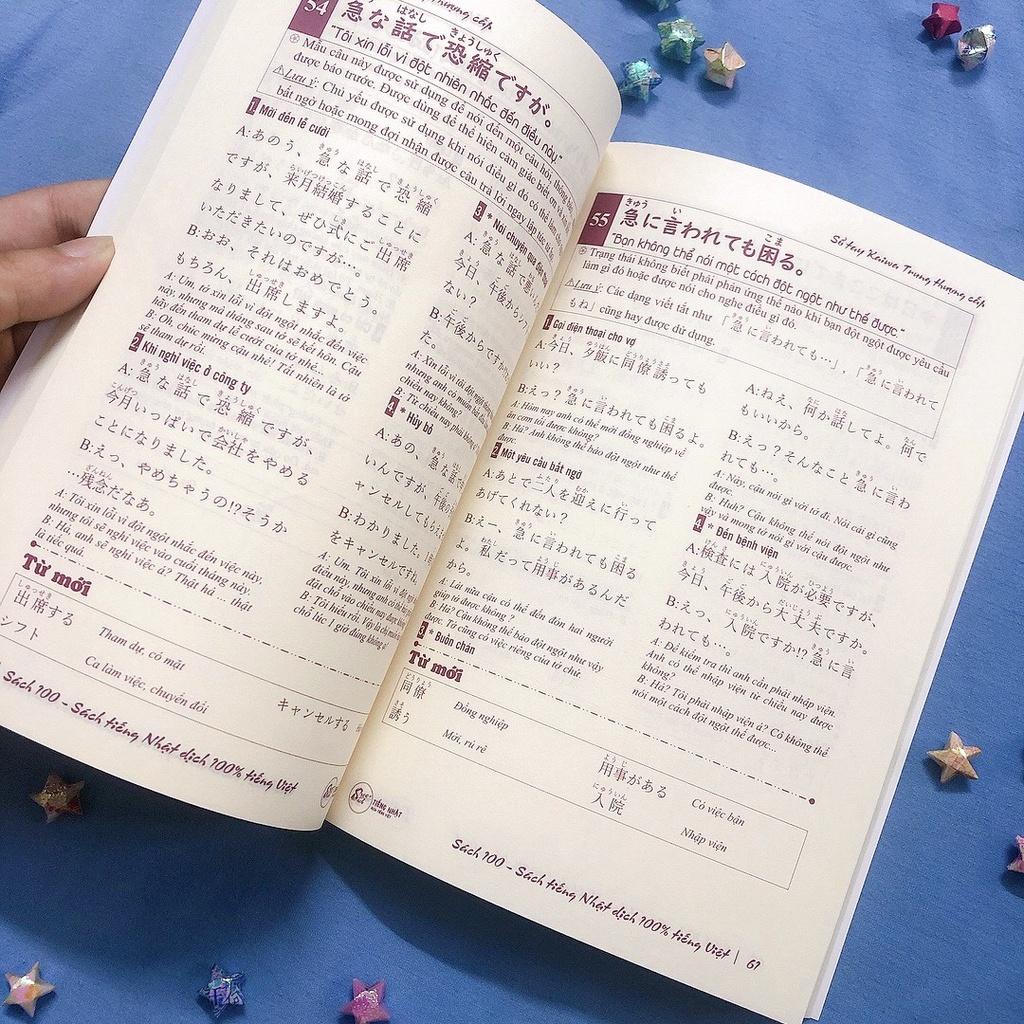 54
急な話で恐縮ですが。
"Tôi xin lỗi vì đột nhiên nhắc đến điều này."
Mẫu câu này được sử dụng để nói đến một câu hỏi, thông báo
được báo trước. Được dùng để thể hiện cảm giác biết ơn và
Lưu ý: Chủ yếu được sử dụng khi nói điều gì đó có thể làm
bất ngờ hoặc mong đợi nhận được câu trả lời ngay lập tức từ
1 Mời đến lễ cưới
A:あのう、急な話で恐縮
ですが、来月結婚することに
なりまして、ぜひ式にご出席
いただきたいのですが…。
B:おお、それはおめでとう。
もちろん、出席しますよ。
A: Ưm, tớ xin lỗi vì đột ngột nhắc đến việc
này, nhưng mà tháng sau tớ sẽ kết hôn. Cậu
hãy đến tham dự lễ cưới của tớ nhé...
B: Ồ, chúc mừng cậu nhé! Tất nhiên là tớ
sẽ tham dự rồi.
2 Khi nghỉ việc ở công ty
A:急な話で恐縮ですが、
今月いっぱいで会社をやめる
ことになりました。
B:えっ、やめちゃうの!?そうか
…残念だなあ。
A: Tôi xin lỗi vì đột ngột nhắc đến việc này,
nhưng tôi sẽ nghỉ việc vào cuối tháng này.
B: Hả, anh sẽ nghỉ việc á? Thật hả... thật
là tiếc quá.
3 * Nói chuyện qua điện
A:急な話で
今日、午後からシフ
ない?
B:午後からですか
た。
A: Xin lỗi vì tôi đột ngột
nhưng anh có muốn
chiều nay không?
B: Từ chiều nay phải không
4 * Hủy bỏ
A:あの、急な話
いんですが、午後
ャンセルしてもらえ
B:わかりました。
をキャンセルですね。
A: Ưm. Tôi xin lỗi vì đột ngột
điều này, nhưng anh có thể
đặt chỗ vào chiều nay được
B: Tôi hiểu rồi. Vậy là chị muốn
chỗ lúc 1 giờ đúng không ạ
Từ mới
出席する Tham dự, có mặt
シフト Ca làm việc, chuyển đổi
キャンセルする
Sách 100 - Sách tiếng Nhật dịch 100% tiếng Việt
Sổ tay Kaiwa Trung thượng cấp
55
急に言われても困る。
"Bạn không thể nói một cách đột ngột như thế được."
Trạng thái không biết phải phản ứng thế nào khi bạn đột ngột được yêu cầu
làm gì đó hoặc được nói cho nghe điều gì đó.
Lưu ý: Các dạng viết tắt như 「急に言われても…」,「急に言われて
もね」cũng hay được sử dụng.
1 Gọi điện thoại cho vợ
A:今日、夕飯に同僚誘っても
いい?
B:えっ?急に言われても困るよ。
A: Hôm nay anh có thể mời đồng nghiệp về
ăn cơm tối được không?
B: Hả? Anh không thể bảo đột ngột như thế
được.
2 Một yêu cầu bất ngờ
A:あとで二人を迎えに行って
あげてくれない?
B:えー、急に言われても困る
よ。私だって用事があるんだ
から。
A: Lát nữa cậu có thể đến đón hai người
giúp tớ được không ?
B: Hả? Cậu không thể bảo đột ngột như vậy
được. Tớ cũng có việc riêng của tớ chứ.
3 * Buồn chán
A:ねえ、何か話してよ。何で
もいいから。
B:えっ?そんなこと急に言わ
れても…。
A: Này, cậu nói gì với tớ đi. Nói cái gì cũng
được.
B: Huh? Cậu không thể nói đột ngột như
vậy và mong tớ nói gì với cậu được.
4 * Đến bệnh viện
A:検査には入院が必要ですが、
今日、午後から大丈夫ですか。
B:えっ、入院ですか!?急に言
われても…。
A: Để kiểm tra thì anh cần phải nhập viện.
Anh có thể nhập viện từ chiều nay được
không?
B: Hả? Tôi phải nhập viện á? Cô không thể
nói một cách đột ngột thế được...
Từ mới
同僚 Đồng nghiệp
誘う Mời, rủ rê
用事がある Có việc bận
入院 Nhập viện
TIẾNG NHẬT
Sách 100 - Sách tiếng Nhật dịch 100% tiếng Việt | 61